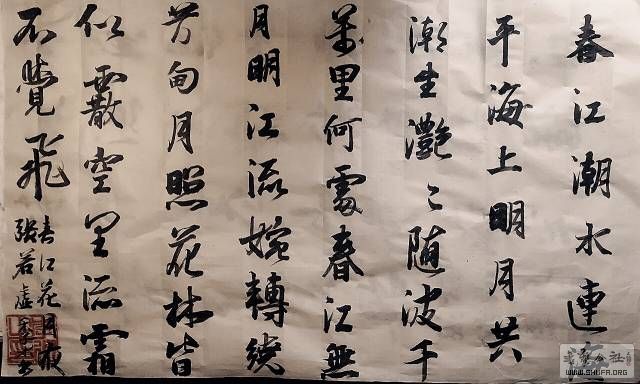 春江潮水連
平海上明月共
潮生灧〻随波千
萬里何處春江無
月明江流婉轉繞
芳甸月照花林皆
似霰空里流霜
不覺飛
春江花月夜
張若虛
WWW.SHUFA.ORG